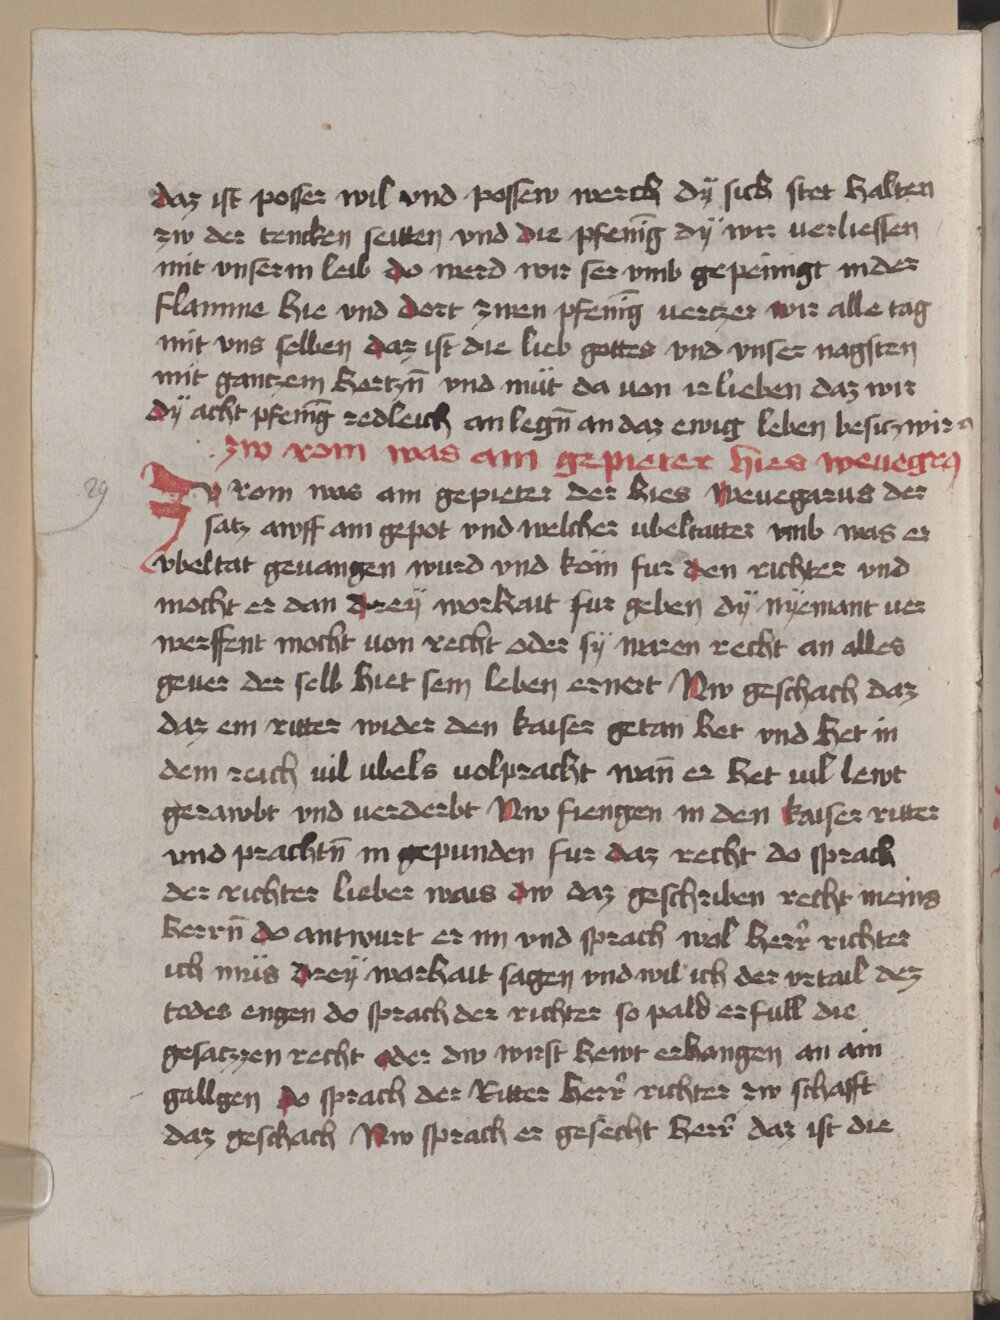 daz ist posser wil vnd possew werch dÿ sich stet halten
zw der tencken seitten vnd die pfenīg dÿ wir verliessen
mit vnserm leib do werd wir ser vmb gepeinigt in der
flamme hie vnd dort zwen pfenīg uerczer wir alle tag
mit vns selben daz ist die lieb gottes vnd vnser nagsten
mit gantzem hertzn̄ vnd müt da uon ir lieben daz wir
dÿ acht pfenīg redleich an legn̄ an daz ewig leben besiczwirn
zw rom was am gepieter hies weuegerꝰ
Zu Rom was am gepieter der hies Weuegarus der
29
satz awff am gepot vnd welcher ubeltatter vmb was er
vbeltat geuangen wurd vnd köm fur den richter vnd
mocht er dan dreÿ worhait fur geben dÿ nÿemant uer
werffent mocht uon recht oder sÿ waren recht an alles
geuer der selb hiet sein leben ernert Nw geschach daz
daz em ritter wider den kaiser getan het vnd het in
dem reich uil ubels uolpracht wan̄ er het uil lewt
gerawbt vnd uerderbt Nw fiengen in den kaiser ritter
vnd prachtn̄ in gepunden fur daz recht do sprach
der richter lieber wais dw daz geschriben recht meins
herrn̄ do antwurt er im vnd sprach wol herr̄ richter
ich müs dreÿ warhait sagen vnd wil ich der vrtail dez
todes engen do sprach der richter so pald erfull die
gesatzzen recht oder dw wirst hewt erhangen an ain
gallgen do sprach der Ritter herr̄ richter zw schafft
daz geschach Nw sprach er gesecht herr̄ daz ist die